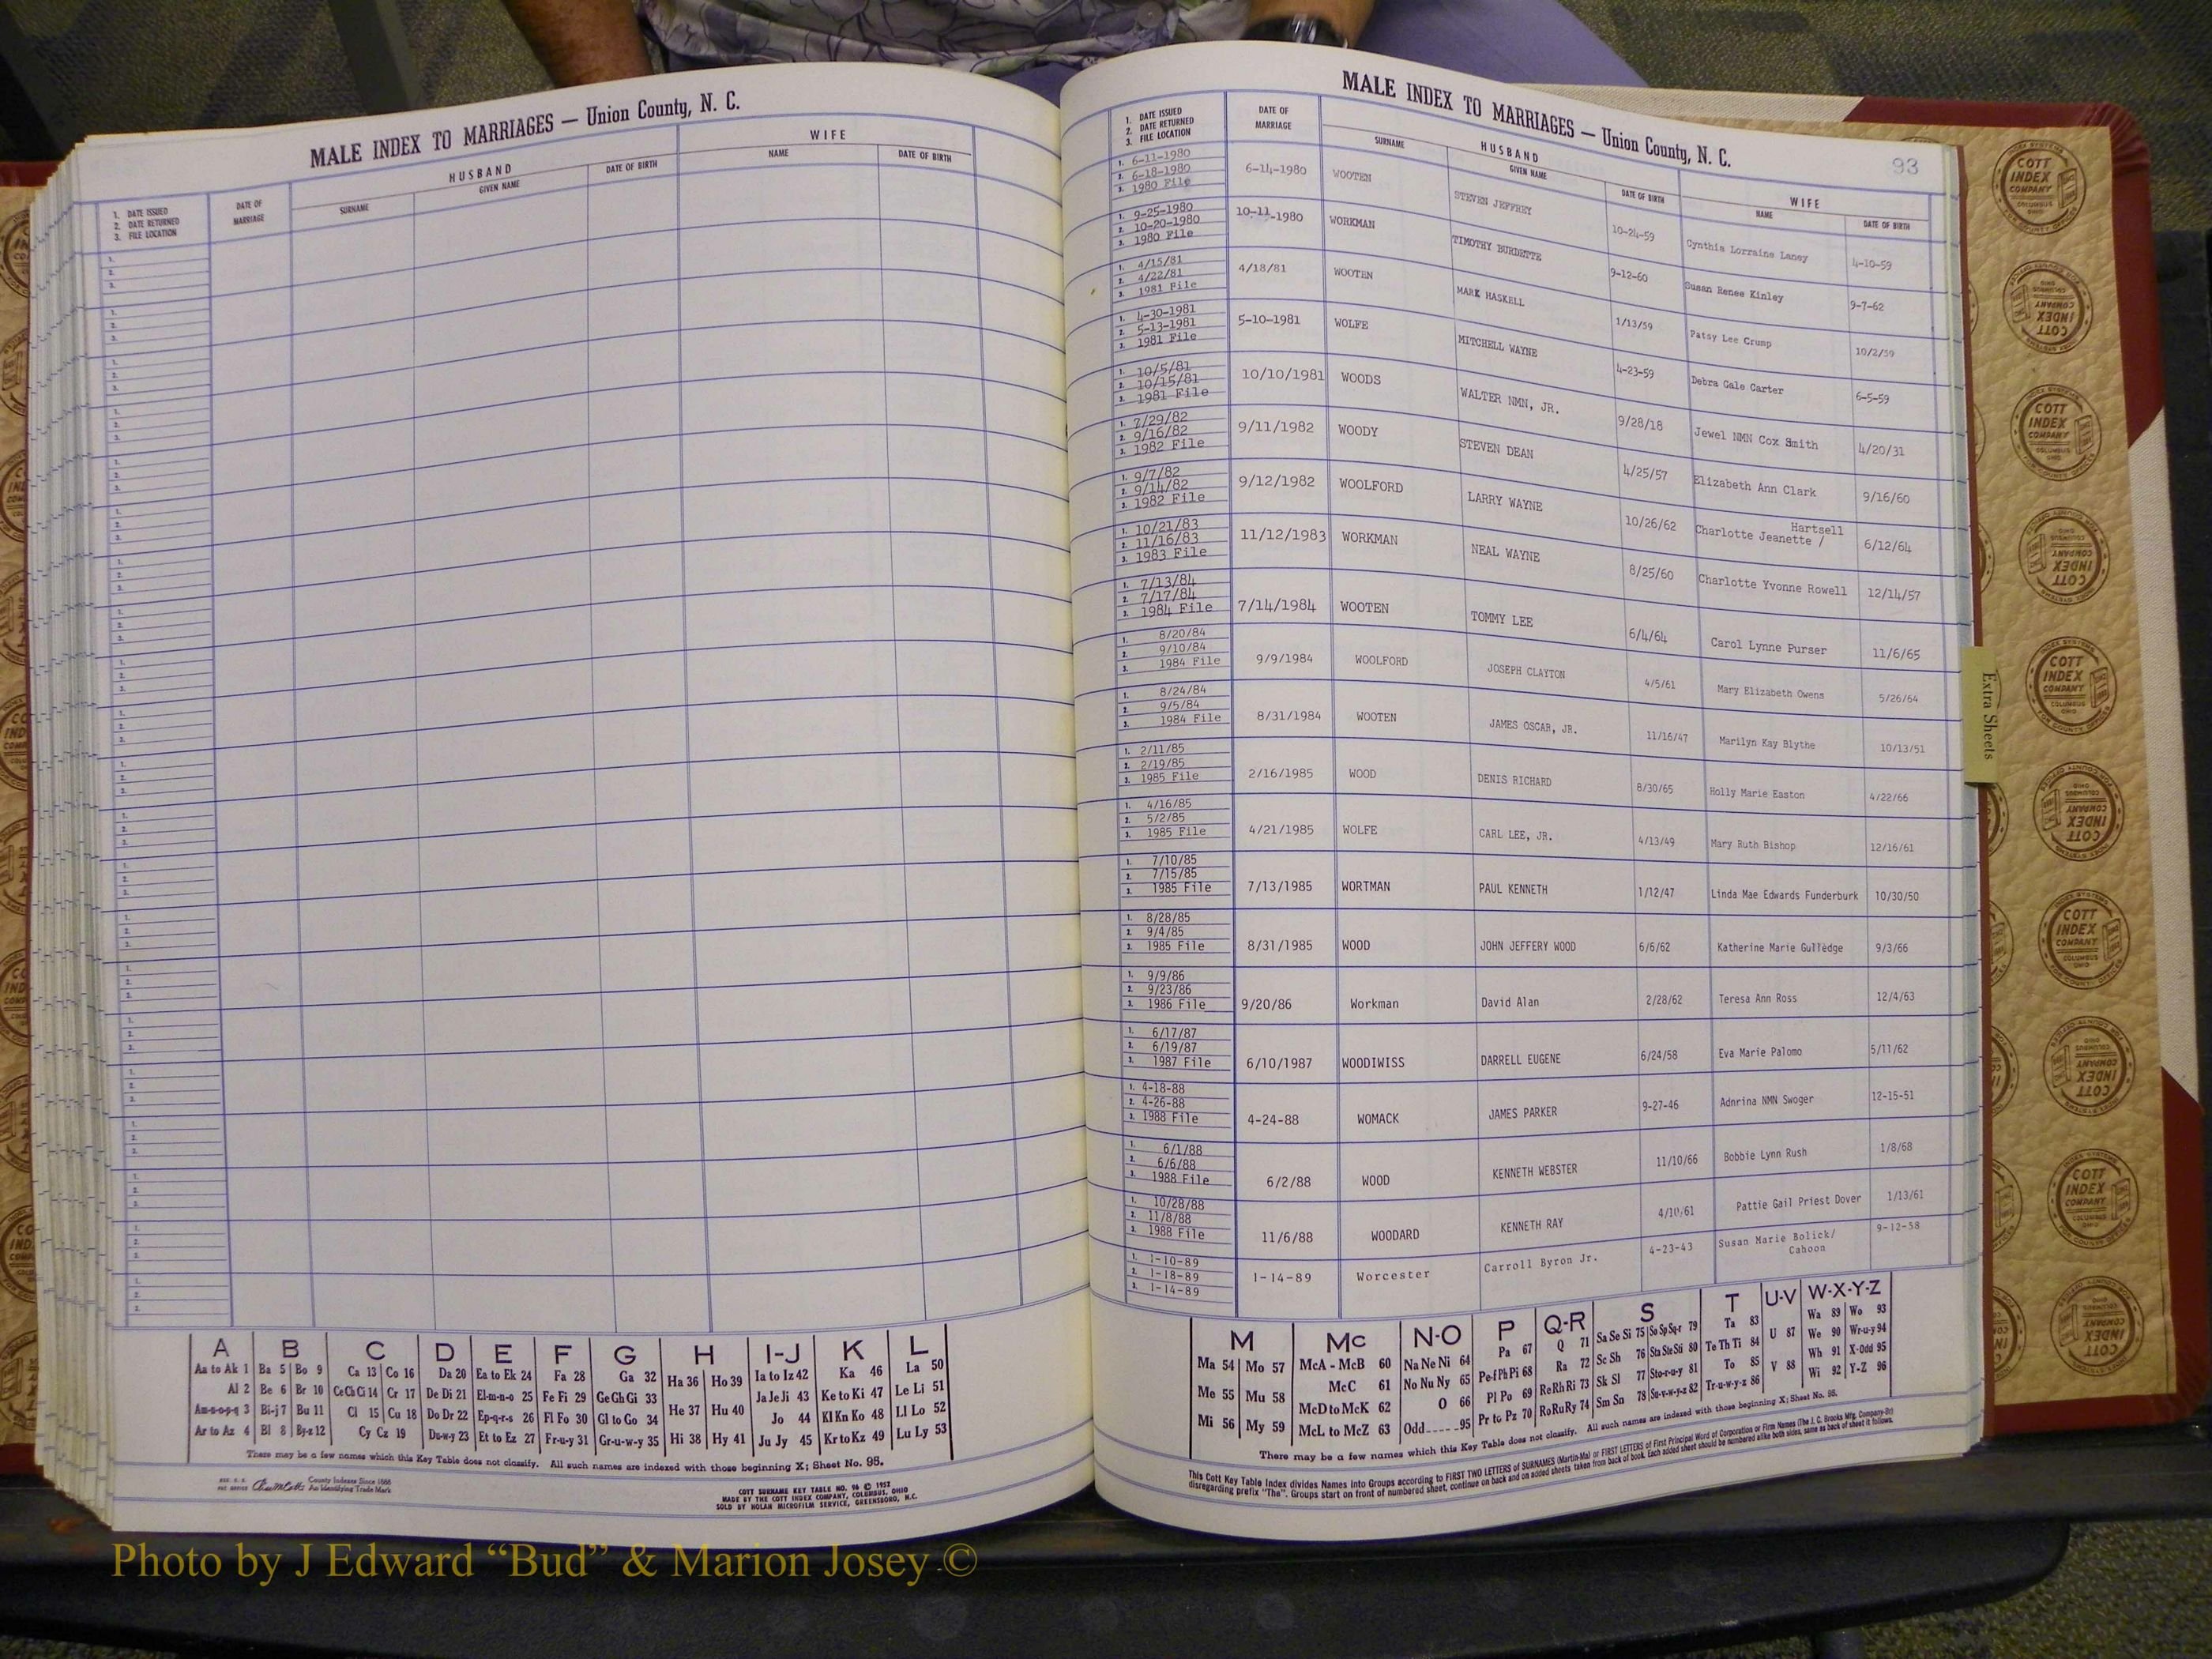 MALE INDEX TO MARRIAGES — Union County, N. C.
HUSBAND
WIFE
1. DATE ISSUED
2. DATE RETURNED
3. FILE LOCATION
DATE OF MARRIAGE
SURNAME
GIVEN NAME
DATE OF BIRTH
NAME
DATE OF BIRTH
A B C D E F G H I-J K L
Aa to Ak 1 Ba 5 Bo 9 Ca 13 Co 16 Da 20 Ea to Ek 24 Fa 28 Ga 32 Ha 36 Ho 39 Ia to Iz 42 Ka 46 La 50
Al 2 Be 6 Br 10 Ce Ch Ci 14 Cr 17 De Di 21 El-m-n-o 25 Fe Fi 29 Ge Gh Gi 33 He 37 Hu 40 Ja Je Ji 43 Ke to Ki 47 Le Li 51
Am-n-o-p-q 3 Bi-j 7 Bu 11 Cl 15 Cu 18 Do Dr 22 Ep-q-r-s 26 Fl Fo 30 Gl to Go 34 Hi 38 Hy 41 Jo 44 Kl Kn Ko 48 Ll Lo 52
Ar to Az 4 Bl 8 By-z 12 Cy Cz 19 Du-w-y 23 Et to Ez 27 Fr-u-y 31 Gr-u-w-y 35 Ju Jy 45 Kr to Kz 49 Lu Ly 53
There may be a few names which this Key Table does not classify. All such names are indexed with those beginning X; Sheet No. 95.
County Indexes Since 1888
An Identifying Trade Mark
COTT SURNAME KEY TABLE NO. 96 © 1952
MADE BY THE COTT INDEX COMPANY, COLUMBUS, OHIO
SOLD BY NOLAN MICROFILM SERVICE, GREENSBORO, N.C.
MALE INDEX TO MARRIAGES — Union County, N. C.
93
1. DATE ISSUED
2. DATE RETURNED
3. FILE LOCATION
DATE OF MARRIAGE
HUSBAND
SURNAME
GIVEN NAME
DATE OF BIRTH
WIFE
NAME
DATE OF BIRTH
1. 6-11-1980
2. 6-18-1980
3. 1980 File
6-14-1980 WOOTEN STEVEN JEFFREY 10-24-59 Cynthia Lorraine Laney 4-10-59
1. 9-25-1980
2. 10-20-1980
3. 1980 File
10-11-1980 WORKMAN TIMOTHY BURDETTE 9-12-60 Susan Renee Kinley 9-7-62
1. 4/15/81
2. 4/22/81
3. 1981 File
4/18/81 WOOTEN MARK HASKELL 1/13/59 Patsy Lee Crump 10/2/59
1. 4-30-1981
2. 5-13-1981
3. 1981 File
5-10-1981 WOLFE MITCHELL WAYNE 4-23-59 Debra Gale Carter 6-5-59
1. 10/5/81
2. 10/15/81
3. 1981 File
10/10/1981 WOODS WALTER NMN, JR. 9/28/18 Jewel NMN Cox Smith 4/20/31
1. 7/29/82
2. 9/16/82
3. 1982 File
9/11/1982 WOODY STEVEN DEAN 4/25/57 Elizabeth Ann Clark 9/16/60
1. 9/7/82
2. 9/14/82
3. 1982 File
9/12/1982 WOOLFORD LARRY WAYNE 10/26/62 Charlotte Jeanette / Hartsell 6/12/64
1. 10/21/83
2. 11/16/83
3. 1983 File
11/12/1983 WORKMAN NEAL WAYNE 8/25/60 Charlotte Yvonne Rowell 12/14/57
1. 7/13/84
2. 7/17/84
3. 1984 File
7/14/1984 WOOTEN TOMMY LEE 6/4/64 Carol Lynne Purser 11/6/65
1. 8/20/84
2. 9/10/84
3. 1984 File
9/9/1984 WOOLFORD JOSEPH CLAYTON 4/5/61 Mary Elizabeth Owens 5/26/64
1. 8/24/84
2. 9/5/84
3. 1984 File
8/31/1984 WOOTEN JAMES OSCAR, JR. 11/16/47 Marilyn Kay Blythe 10/13/51
1. 2/11/85
2. 2/19/85
3. 1985 File
2/16/1985 WOOD DENIS RICHARD 8/30/65 Holly Marie Easton 4/22/66
1. 4/16/85
2. 5/2/85
3. 1985 File
4/21/1985 WOLFE CARL LEE, JR. 4/13/49 Mary Ruth Bishop 12/16/61
1. 7/10/85
2. 7/15/85
3. 1985 File
7/13/1985 WORTMAN PAUL KENNETH 1/12/47 Linda Mae Edwards Funderburk 10/30/50
1. 8/28/85
2. 9/4/85
3. 1985 File
8/31/1985 WOOD JOHN JEFFERY WOOD 6/6/62 Katherine Marie Gulledge 9/3/66
1. 9/9/86
2. 9/23/86
3. 1986 File
9/20/86 Workman David Alan 2/28/62 Teresa Ann Ross 12/4/63
1. 6/17/87
2. 6/19/87
3. 1987 File
6/10/1987 WOODIWISS DARRELL EUGENE 6/24/58 Eva Marie Palomo 5/11/62
1. 4-18-88
2. 4-26-88
3. 1988 File
4-24-88 WOMACK JAMES PARKER 9-27-46 Adnrina NMN Swoger 12-15-51
1. 6/1/88
2. 6/6/88
3. 1988 File
6/2/88 WOOD KENNETH WEBSTER 11/10/66 Bobbie Lynn Rush 1/8/68
1. 10/28/88
2. 11/8/88
3. 1988 File
11/6/88 WOODARD KENNETH RAY 4/10/61 Pattie Gail Priest Dover 1/13/61
1. 1-10-89
2. 1-18-89
3. 1-14-89
1-14-89 Worcester Carroll Byron Jr. 4-23-43 Susan Marie Bolick/ Cahoon 9-12-58
M Mc N-O P Q-R S T U-V W-X-Y-Z
Ma 54 Mo 57 McA - McB 60 Na Ne Ni 64 Pa 67 Q 71 Sa Se Si 75 So Sp Sq-r 79 Ta 83 U 87 Wa 89 Wo 93
Me 55 Mu 58 McC 61 No Nu Ny 65 Pe-f Ph Pi 68 Ra 72 Sc Sh 76 Sta Ste Sti 80 Te Th Ti 84 V 88 We 90 Wr-u-y 94
Mi 56 My 59 McD to McK 62 O 66 Pl Po 69 Re Rh Ri 73 Sk Sl 77 Sto-r-u-y 81 To 85 Wh 91 X-Odd 95
McL to McZ 63 Odd 95 Pr to Pz 70 Ro Ru Ry 74 Sm Sn 78 Su-v-w-y-z 82 Tr-u-w-y-z 86 Wi 92 Y-Z 96
There may be a few names which this Key Table does not classify. All such names are indexed with those beginning X; Sheet No. 95.
This Cott Key Table Index divides Names into Groups according to FIRST TWO LETTERS of SURNAMES (Martin-Ma) or FIRST LETTERS of First Principal Word of Corporation or Firm Names (The J. C. Brooks Mfg. Company-Br)
disregarding prefix "The". Groups start on front of numbered sheet, continue on back and on added sheets taken from back of book. Each added sheet should be numbered alike both sides, same as back of sheet it follows.
Extra Sheets
COTT INDEX COMPANY
COLUMBUS OHIO
Photo by J Edward “Bud” & Marion Josey ©